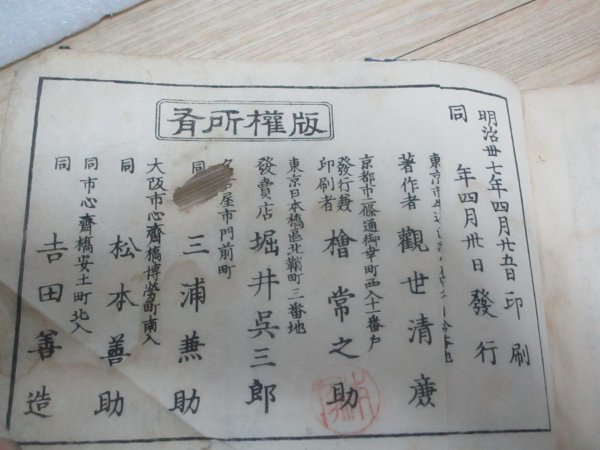 版權所有
明治卅七年四月廿五日印刷
同 年四月卅日發行
著作者 觀世清廉
京都市二條通御幸町西入十二番戸
發行兼印刷者 檜常之助
東京日本橋區北鞘町三番地
發賣店 堀井吳三郎
屋市門前町
同 三浦兼助
大阪市心齋橋博勞町南入
同 松本善助
同市心齋橋安土町北入
同 吉田善造